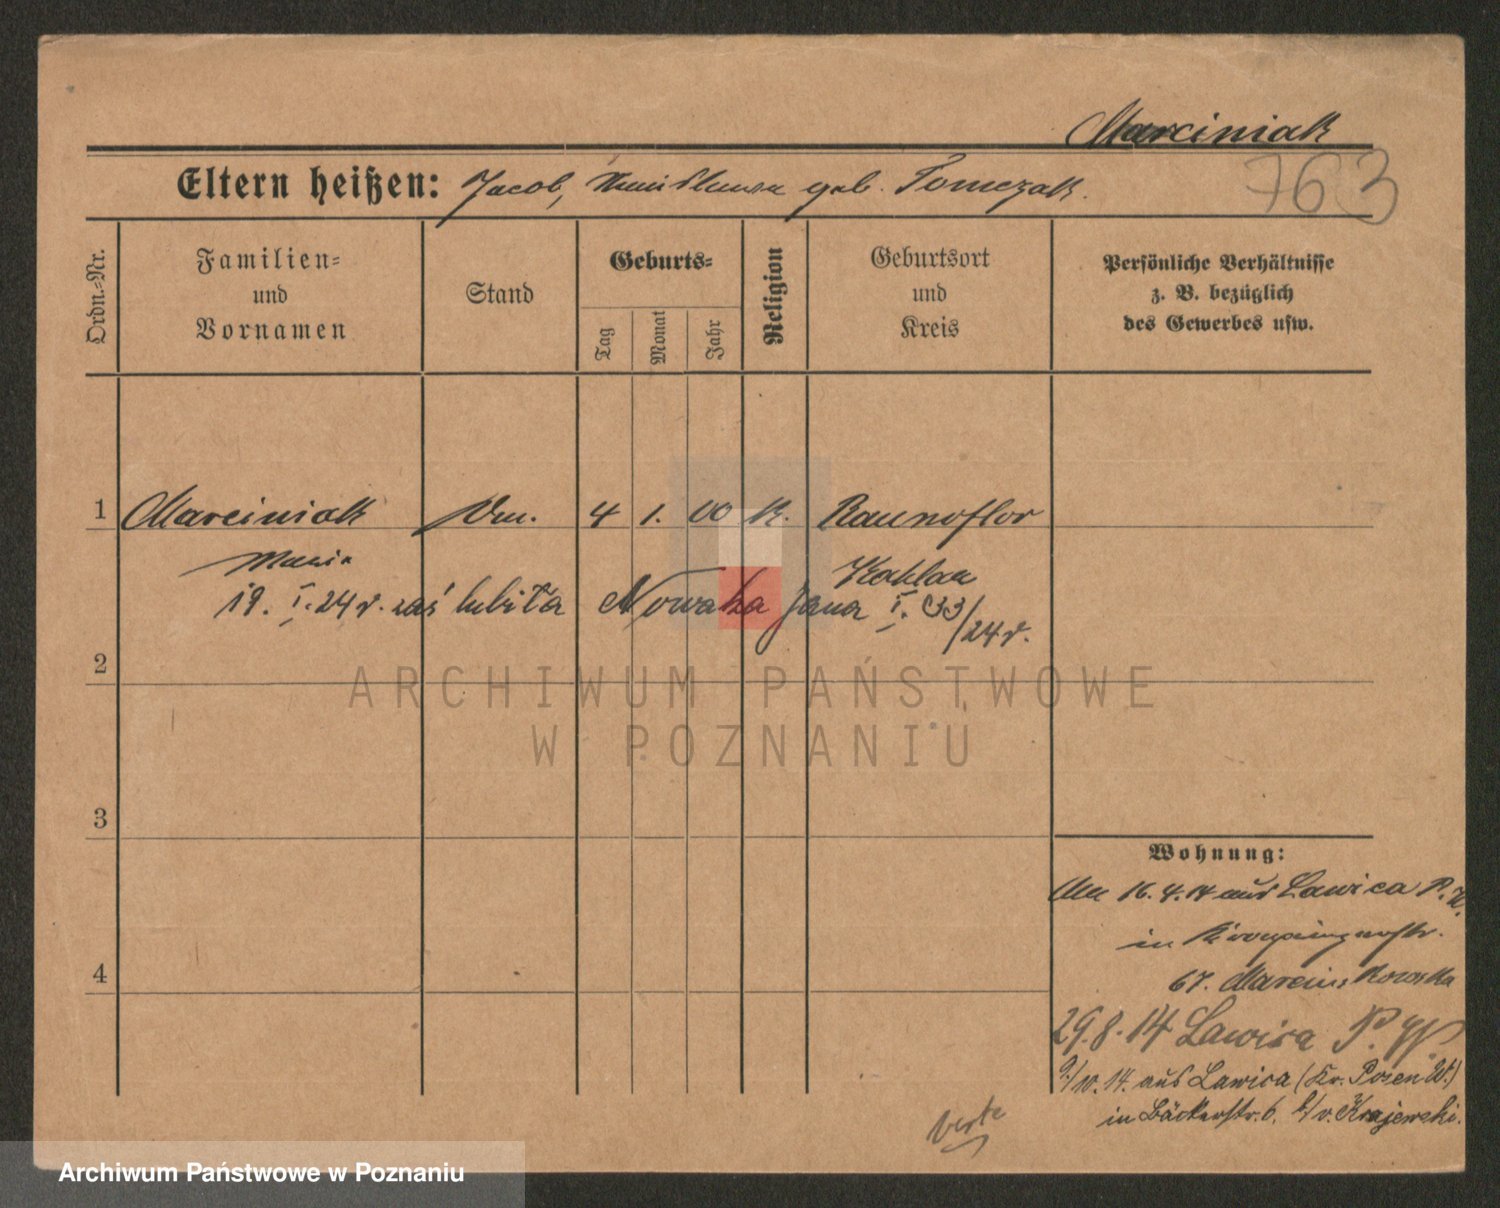 Marciniak
763
Eltern heißen: Jacob, geb. Tomczak.
Ordn.-Nr.
Familien-
und
Vornamen
Stand
Geburts-
Tag
Monat
Jahr
Religion
Geburtsort
und
Kreis
Persönliche Verhältnisse
z. B. bezüglich
des Gewerbes usw.
1 Marciniak 4 1. 00 K.
Maria
19. I. 24 r. zaślubiła Nowaka Jana I. 33/24 r.
2
ARCHIWUM PAŃSTWOWE
W POZNANIU
3
4
Wohnung:
16.4.14 aus Lawica P. W.
in
67.
29.8.14 Lawica P. W.
9/10.14. aus Lawica (Kr. Posen W.)
in Bäckerstr. 6. b/v. Krajewski.
verte
Archiwum Państwowe w Poznaniu